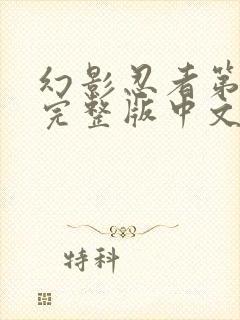 幻影忍者第
完整版中文
特科